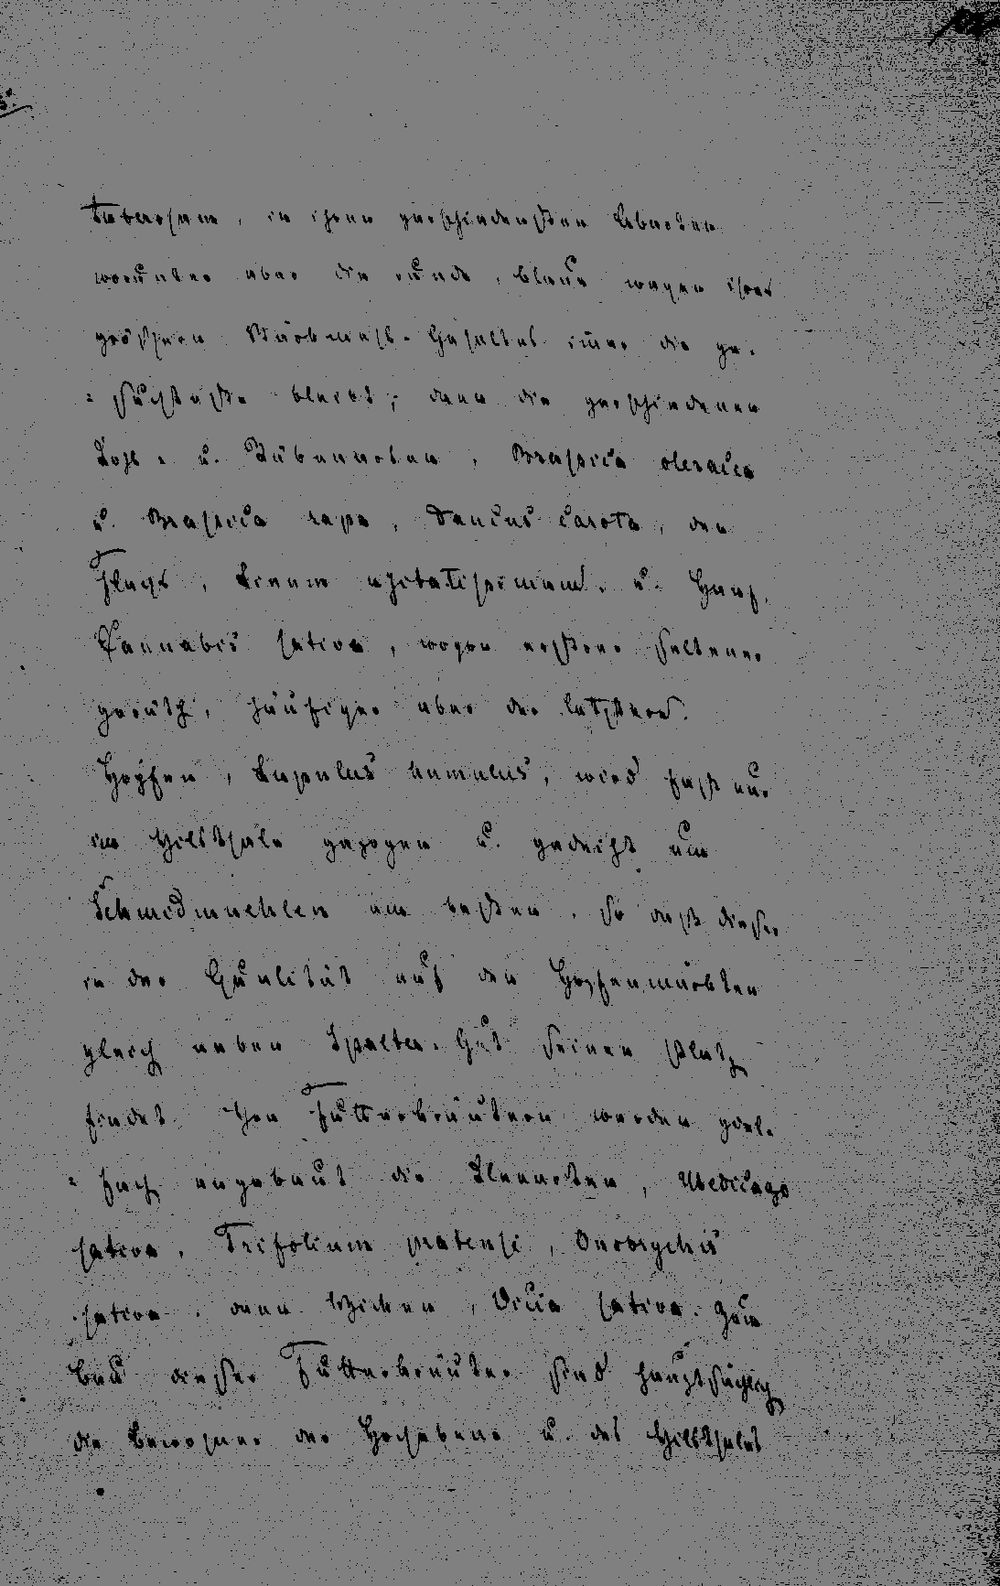 Tuberosum, in ihren verschiedensten Abarten
worunter aber die runde, blaue wegen ihres
größeren Stärkmehl-Gehaltes imer die ge-
=suchteste bleibt; dann die verschiedenen
Kohl- u. Rübenarten, Brassica oleracea
u. Brassica rapa, Daucus Carota, den
Flachs, Linum usitatissimum. u. Hanf,
Cannabis sativa, wovon erstere seltener
geräth, häufiger aber der letztere.
Hopfen, Lupulus humulus, wird fast nur
im Vilsthale gezogen u. gedeiht um
Schmidmuehlen am besten, so daß dieser
in der Qualität auf den Hopfenmärkten
gleich neben Spalter-Gut seinen Platz
findet. Von Futterkräutern werden viel-
=fach angebaut die Kleearten, Medicago
sativa, Trifolium pratense, Onobrychis
sativa, dann Wicken, Vicia sativa. Zum
Bau dieser Futterkräuter sind hauptsächlich
die Bewohner der Hochebene u. des Vilsthales